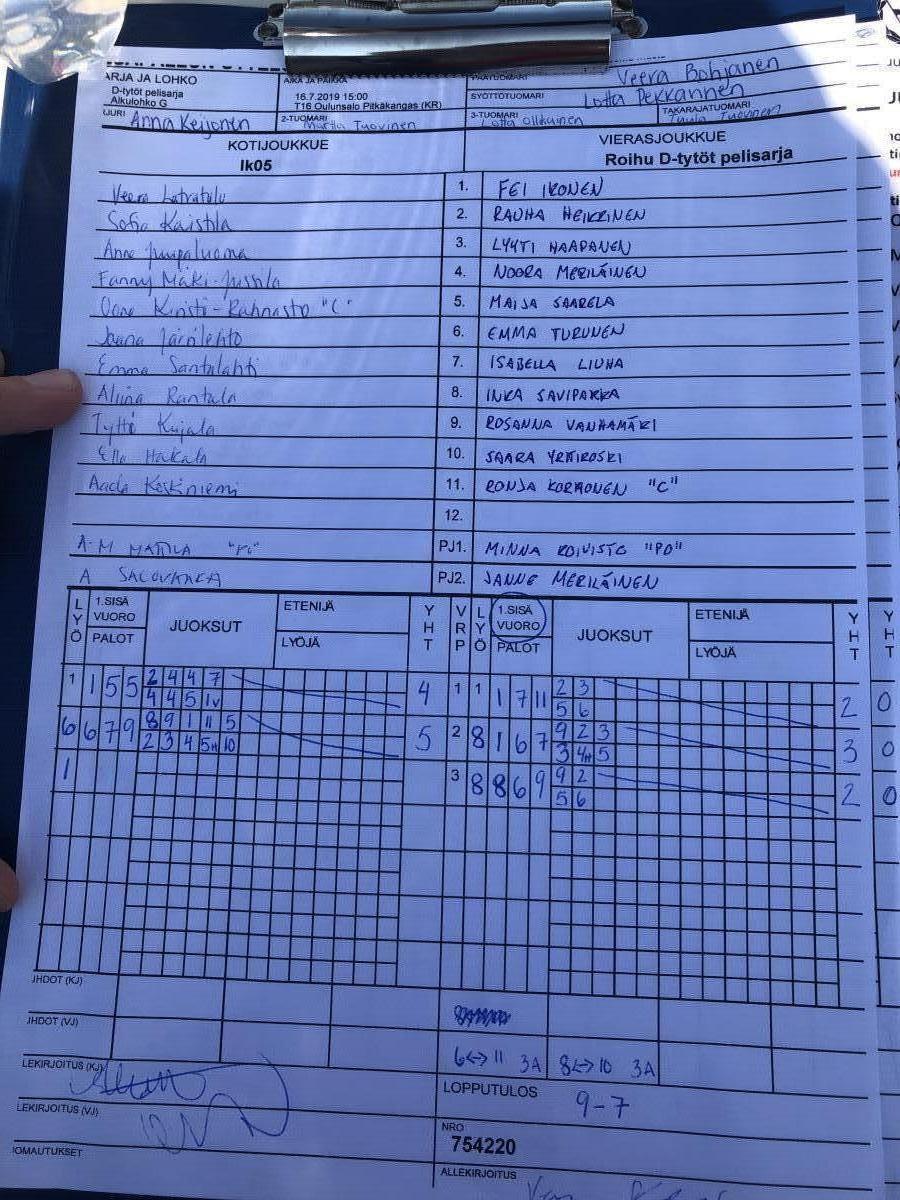 ARJA JA LOHKO
D-tytöt pelisarja
Alkulohko G
AIKA JA PAIKKA
16.7.2019 15:00
T16 Oulunsalo Pitkäkangas (KR)
PÄÄTUOMARI Veera Bohjanen
SYÖTTÖTUOMARI Lotta Pekkannen
Anna Keijonen
2-TUOMARI Tuovinen
3-TUOMARI Lotta Ollkainen
TAKARAJATUOMARI Tuula Tuovinen
KOTIJOUKKUE
Ik05
VIERASJOUKKUE
Roihu D-tytöt pelisarja
Veera Latvatalu 1. FEI IKONEN
Sofia Kaistila 2. RAUHA HEIKKINEN
Anne Juupaluoma 3. LYYTI HAAPANEN
Fanny Mäki-Jussila 4. NOORA MERILÄINEN
Kinsti-Rahnasto "C" 5. MAIJA SAARELA
Jaana Järnlehto 6. EMMA TURUNEN
Emma Santalahti 7. ISABELLA LIUHA
Aliina Rantala 8. INKA SAVIPAKKA
Tytti Kujala 9. ROSANNA VANHAMÄKI
Ella Hakala 10. SAARA YRTIKOSKI
Aada Koskiniemi 11. RONJA KORHONEN "C"
12.
A-M MATTILA PJ1. MINNA KOIVISTO "PO"
A SALOVAARA PJ2. JANNE MERILÄINEN
LYÖ 1.SISÄ VUORO PALOT JUOKSUT ETENIJÄ LYÖJÄ YHT VRP LYÖ 1.SISÄ VUORO PALOT JUOKSUT ETENIJÄ LYÖJÄ YHT
1 1 5 5 2 4 4 7 4 1 1 1 7 11 2 3 2 0
4 4 5 1v 5 6
6 6 7 9 8 9 1 11 5 5 2 8 1 6 7 9 2 3 3 0
2 3 4 5H 10 3 4H 5
1 3 8 8 6 9 9 2 2 0
5 6
JHDOT (KJ)
JHDOT (VJ)
6<->11 3A 8<->10 3A
LEKIRJOITUS (KJ)
LOPPUTULOS
9-7
LEKIRJOITUS (VJ)
NRO
754220
OMAUTUKSET
ALLEKIRJOITUS